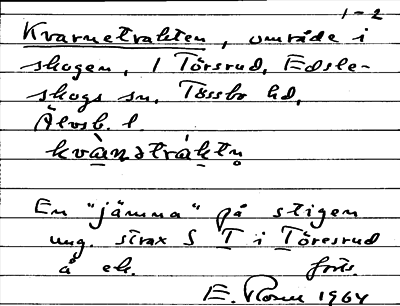 1-2
Kvarnetrakten, område i
skogen, 1 Törsrud, Edsle-
skogs sn, Tössbo hd,
Älvsb. l.
kvàṇətráktṇ
En "jämna" på stigen
ung. strax S T i Töresrud
å ek. forts.
E. 1964